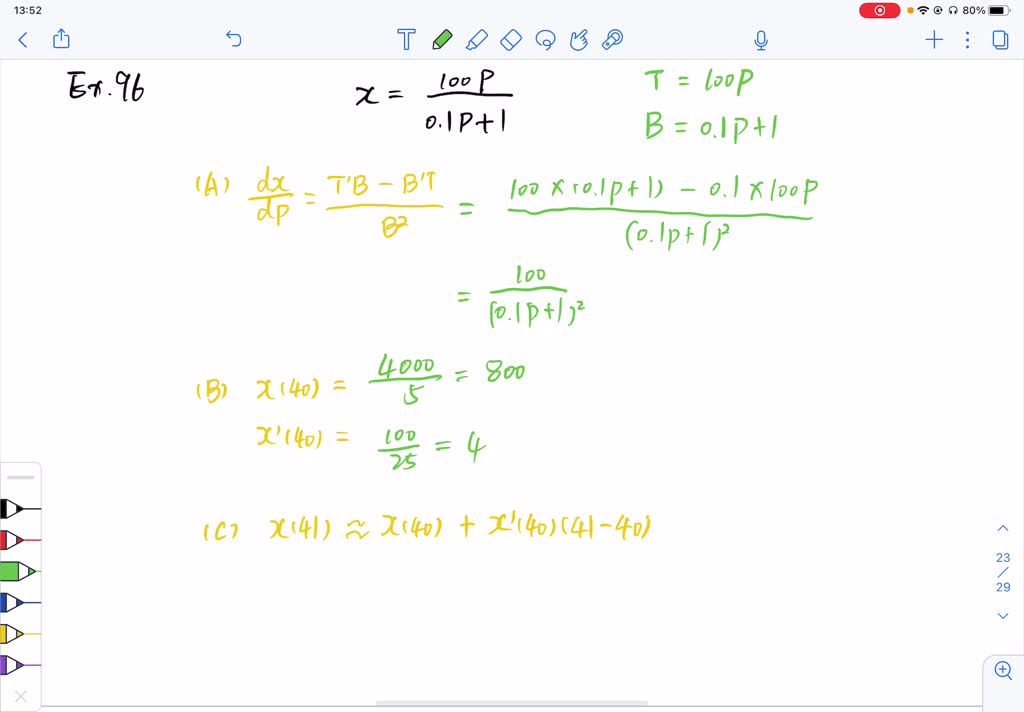 13:52
80%
T
Ex. 96
x = 100P / 0.1P+1
T = 100P
B = 0.1P+1
(A) dx/dP = T'B - B'T / B² = 100 × (0.1P+1) - 0.1 × 100P / (0.1P+1)²
= 100 / (0.1P+1)²
(B) x(40) = 4000/5 = 800
x'(40) = 100/25 = 4
(C) x(41) ≈ x(40) + x'(40)(41-40)
23
/
29